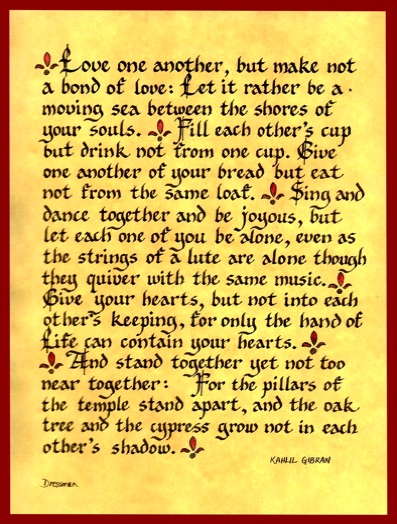 Love one another, but make not
a bond of love: Let it rather be a
moving sea between the shores of
your souls. Fill each other's cup
but drink not from one cup. Give
one another of your bread but eat
not from the same loaf. Sing and
dance together and be joyous, but
let each one of you be alone, even as
the strings of a lute are alone though
they quiver with the same music.
Give your hearts, but not into each
other's keeping, for only the hand of
Life can contain your hearts.
And stand together yet not too
near together: For the pillars of
the temple stand apart, and the oak
tree and the cypress grow not in each
other's shadow.
KAHLIL GIBRAN